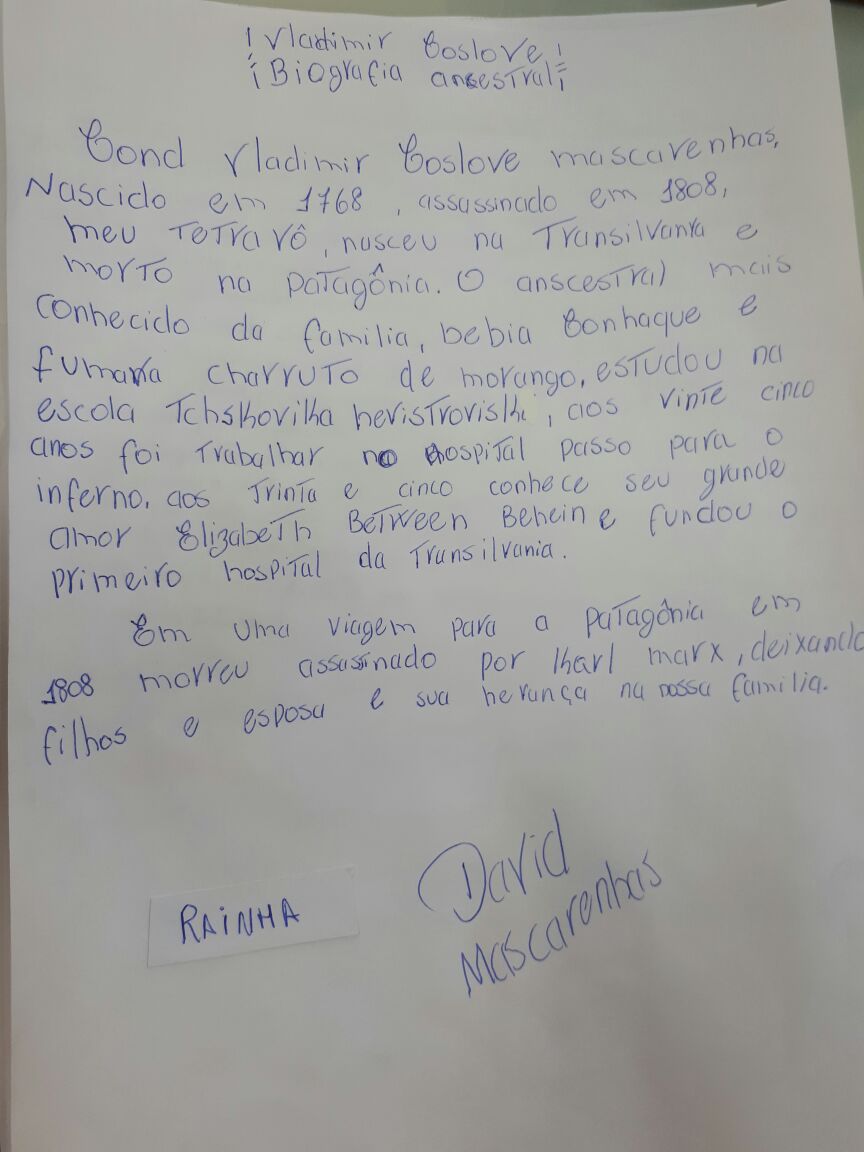 Vladimir Coslove
Biografia ancestral
Cond Vladimir Coslove mascarenhas,
Nascido em 1768, assassinado em 1808,
meu Tetravô, nasceu na Transilvania e
morto na patagônia. O anscestral mais
conhecido da familia, bebia Conhaque e
fumava charruto de morango, estudou na
escola Tchskovilka hevistroviski, aos vinte cinco
anos foi trabalhar no hospital passo para o
inferno, aos trinta e cinco conhece seu grande
amor Elizabeth Between Behein e fundou o
primeiro hospital da Transilvania.
Em uma viagem para a patagônia em
1808 morreu assassinado por karl marx, deixando
filhos e esposa e sua herança na nossa familia.
David
Mascarenhas
RAINHA